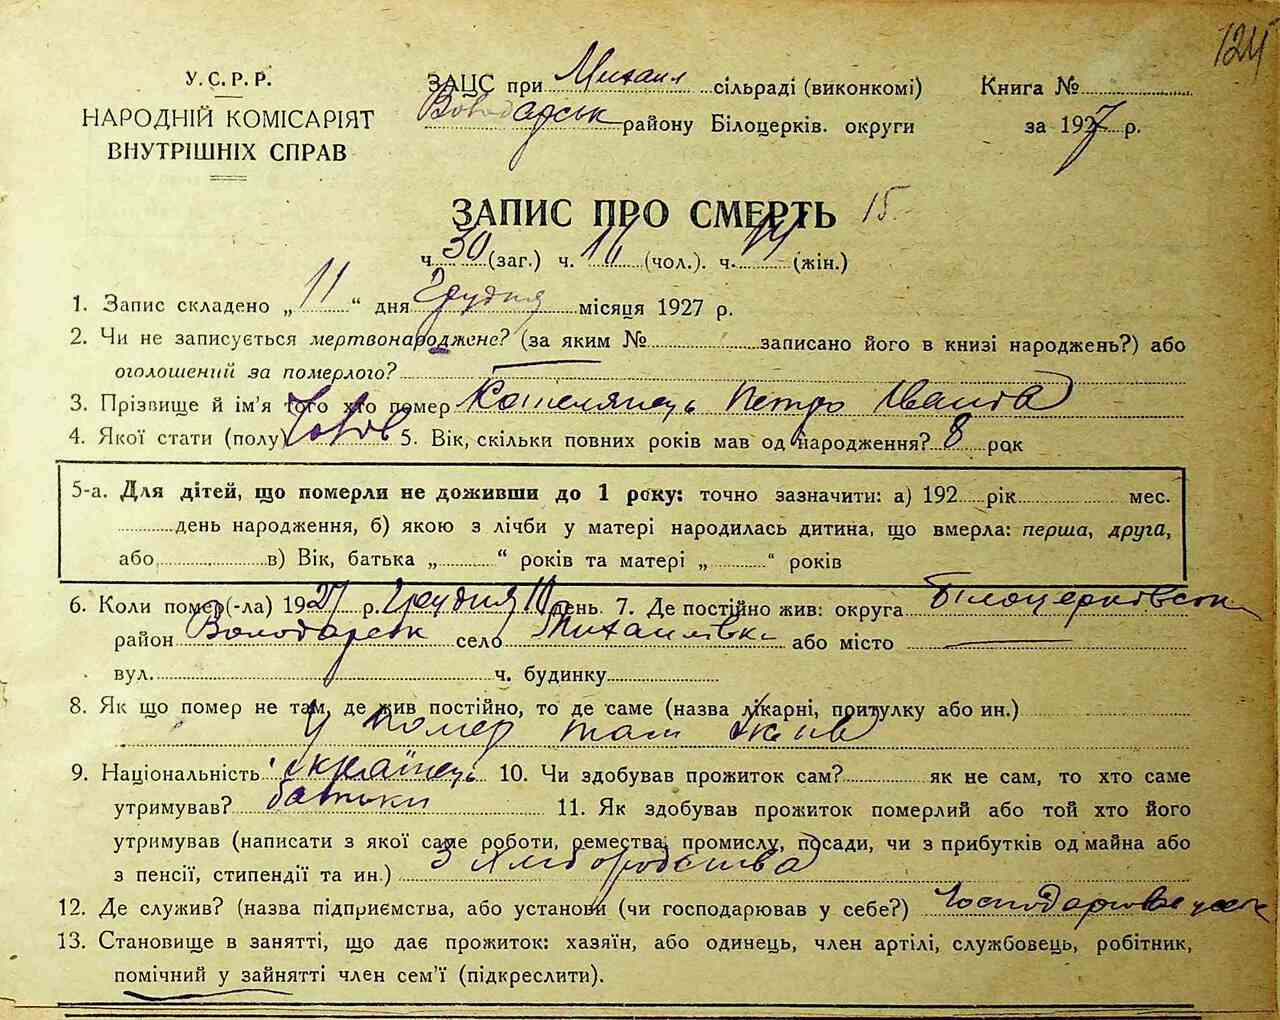 124
У.С.Р.Р.
НАРОДНІЙ КОМІСАРІЯТ
ВНУТРІШНІХ СПРАВ
ЗАЦС при Михаил сільраді (виконкомі)
Володарськ району Білоцерків. округи
Книга №
за 1927 р.
ЗАПИС ПРО СМЕРТЬ 15
ч. 30 (заг.) ч. 16 (чол.). ч. 14 (жін.)
1. Запис складено „ 11 “ дня Грудня місяця 1927 р.
2. Чи не записується мертвонароджене? (за яким № записано його в книзі народжень?) або
оголошений за померлого?
3. Прізвище й ім'я того хто помер Кошелянець Петро Іванов
4. Якої стати (полу) Чолов 5. Вік, скільки повних років мав од народження? 8 рок
5-а. Для дітей, що померли не доживши до 1 року: точно зазначити: а) 192 рік мес.
день народження, б) якою з лічби у матері народилась дитина, що вмерла: перша, друга,
або в) Вік, батька „ “ років та матері „ “ років
6. Коли помер(-ла) 1927 р. Грудня 10 день. 7. Де постійно жив: округа Білоцерковськ
район Володарськ село Михаилівка або місто
вул. ч. будинку
8. Як що помер не там, де жив постійно, то де саме (назва лікарні, притулку або ин.)
помер там жив
9. Національність українець 10. Чи здобував прожиток сам? як не сам, то хто саме
утримував? батьки 11. Як здобував прожиток померлий або той хто його
утримував (написати з якої саме роботи, ремества, промислу, посади, чи з прибутків од майна або
з пенсії, стипендії та ин.) З хліборобства
12. Де служив? (назва підприємства, або установи (чи господарював у себе?) Господарював у себе
13. Становище в занятті, що дає прожиток: хазяїн, або одинець, член артілі, службовець, робітник,
помічний у зайнятті член сем'ї (підкреслити).